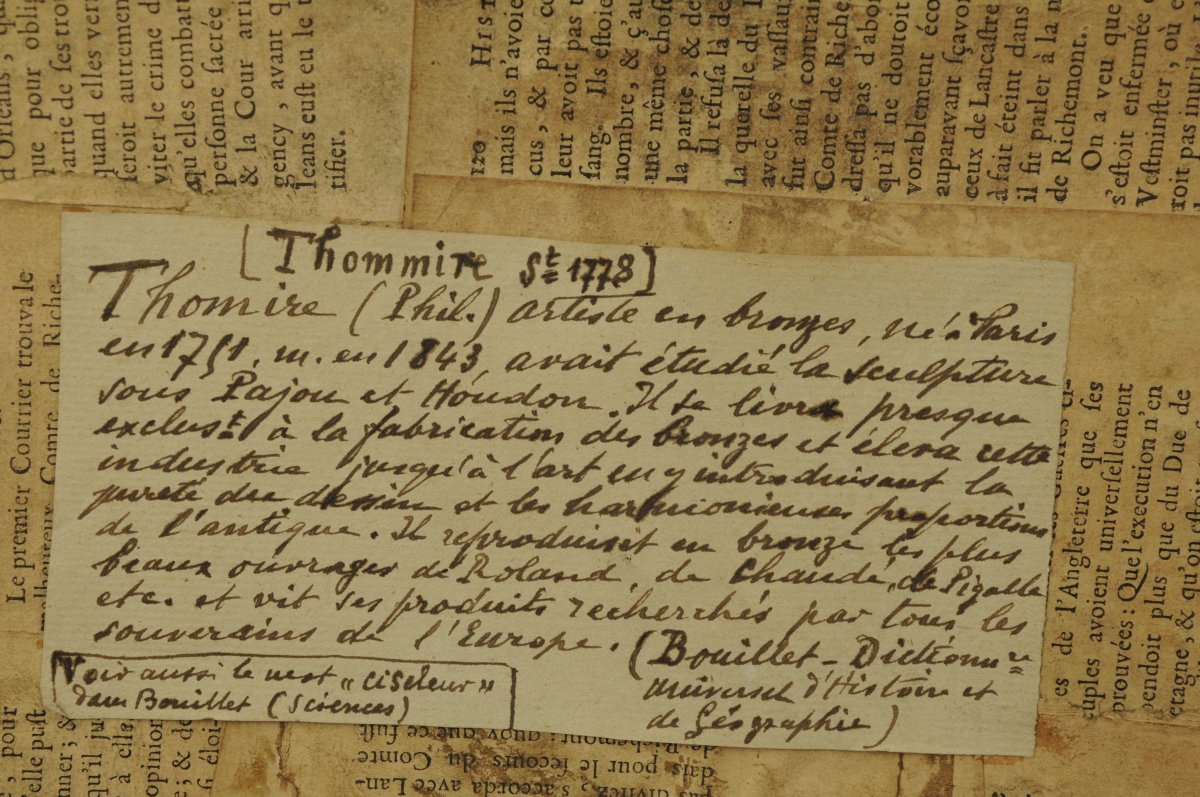 [Thommire St 1778]
Thomire (Phil.) artiste en bronzes, né à Paris
en 1751, m. en 1843, avait étudié la sculpture
sous Pajou et Houdon. Il se livra presque
exclust à la fabrication des bronzes et éleva cette
industrie jusqu'à l'art en y introduisant la
pureté du dessin et les harmonieuses proportions
de l'antique. Il reproduisit en bronze les plus
beaux ouvrages de Roland, de Chaudé, de Pigalle
etc. et vit ses produits recherchés par tous les
souverains de l'Europe. (Bouillet - Dictionnre
universel d'Histoire et
de Géographie)
Voir aussi le mot "ciseleur"
dans Bouillet (Sciences)
d'Orleans, 
que pour obli
partie de ses trou
quand elles verr
seroit autrement
viter le crime d
qu'elles combatt
personne sacrée
& la Cour arri
gency, avant q
leans eust eu le t
tisier.
120 HIST
mais ils n'avoie
cus, & par co
leur avoit pas
sang. Ils estoie
nombre, & ç'au
une mesme chose
la partie, & de
Il refusa là de
la querelle du
avec ses vassau
fut ainsi contrai
Comte de Riche
dressa pas d'abor
qu'il ne doutoit
vorablement éco
auparavant sçavo
ceux de Lancastre
à fait éteint dans
il fit parler à la
de Richemont.
On a veu que
s'estoit enfermée
Vestminster, où
roit pas inutile
Le premier Courrier trouva le
malheureux Comte de Riche-
es de l'Angleterre que ses
euples avoient universellement
prouvées: Que l'execution n'en
pendoit plus que du Duc de
etagne, & qu'on estoit
, pour
elle pust
nner; &
qu'il ju
à elle
opinion
; & de
éloi-
de Richemont: quoy que ce fust
dais pour le secours du Comte
s'accorda avec Lan-